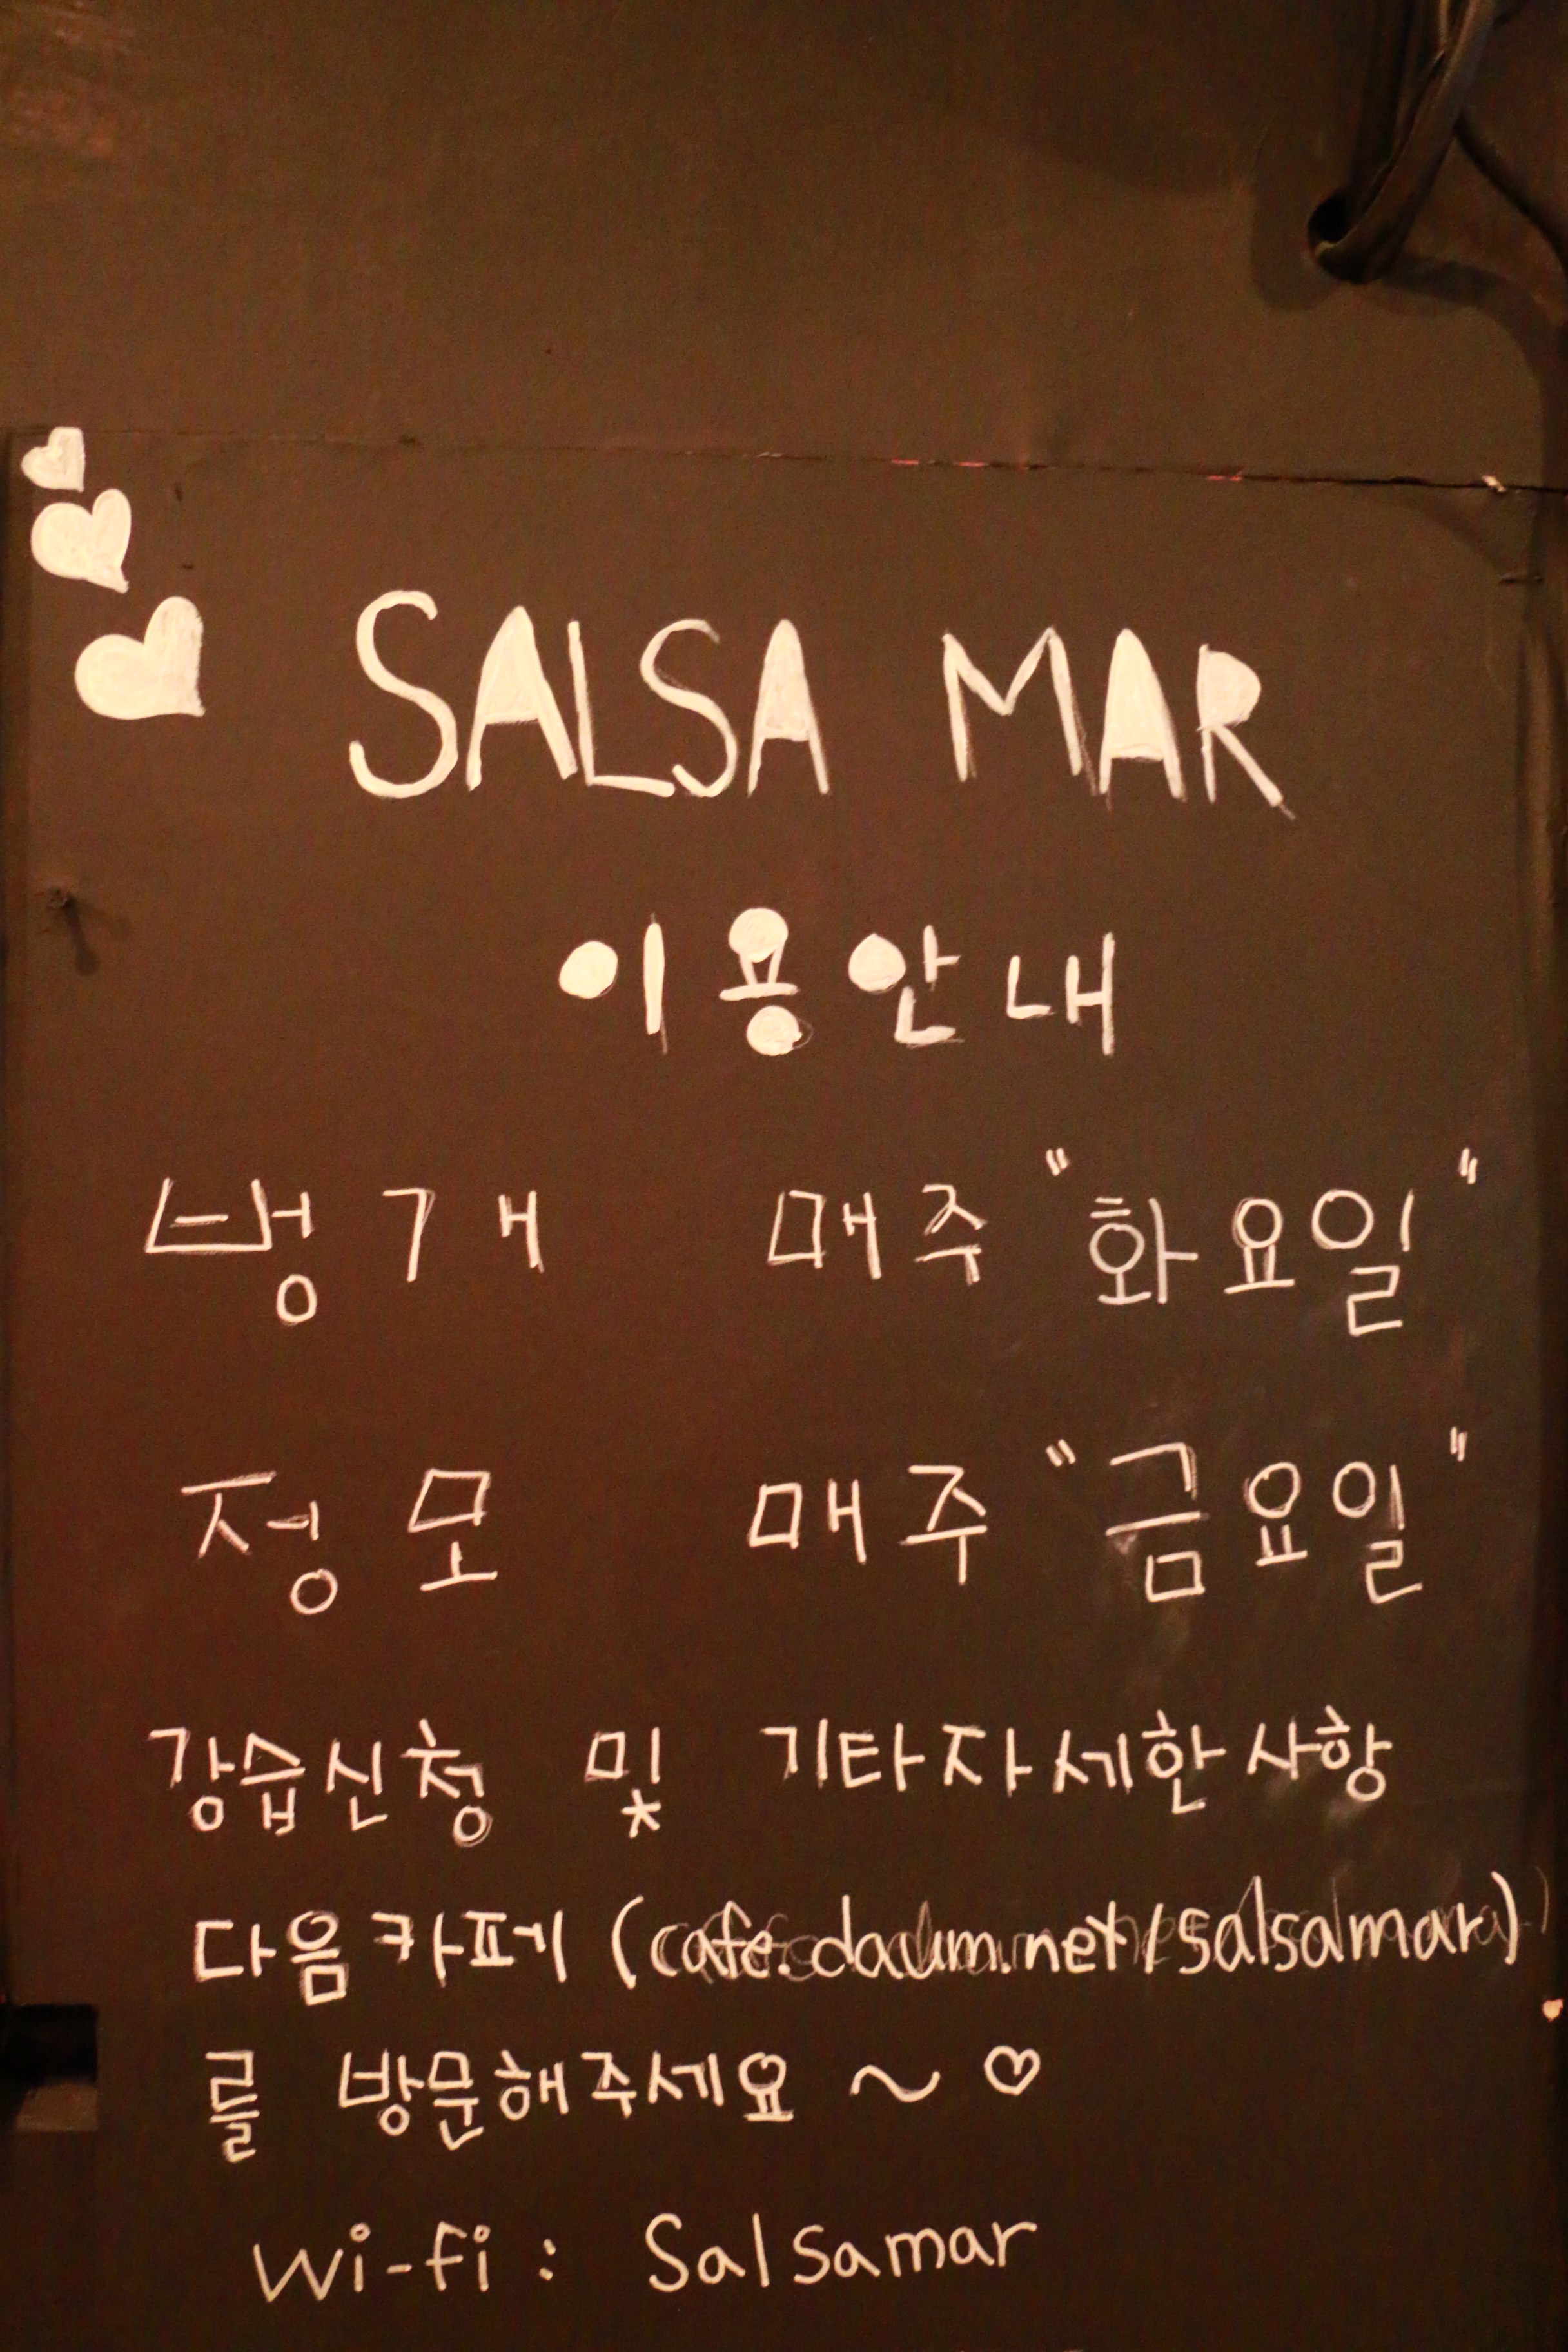 SALSA MAR
이용안내
벙개 매주 "화요일"
정모 매주 "금요일"
강습신청 및 기타자세한사항
다음카페 (cafe.daum.net/salsamar)
를 방문해주세요 ~ ♡
Wi-fi : Salsamar